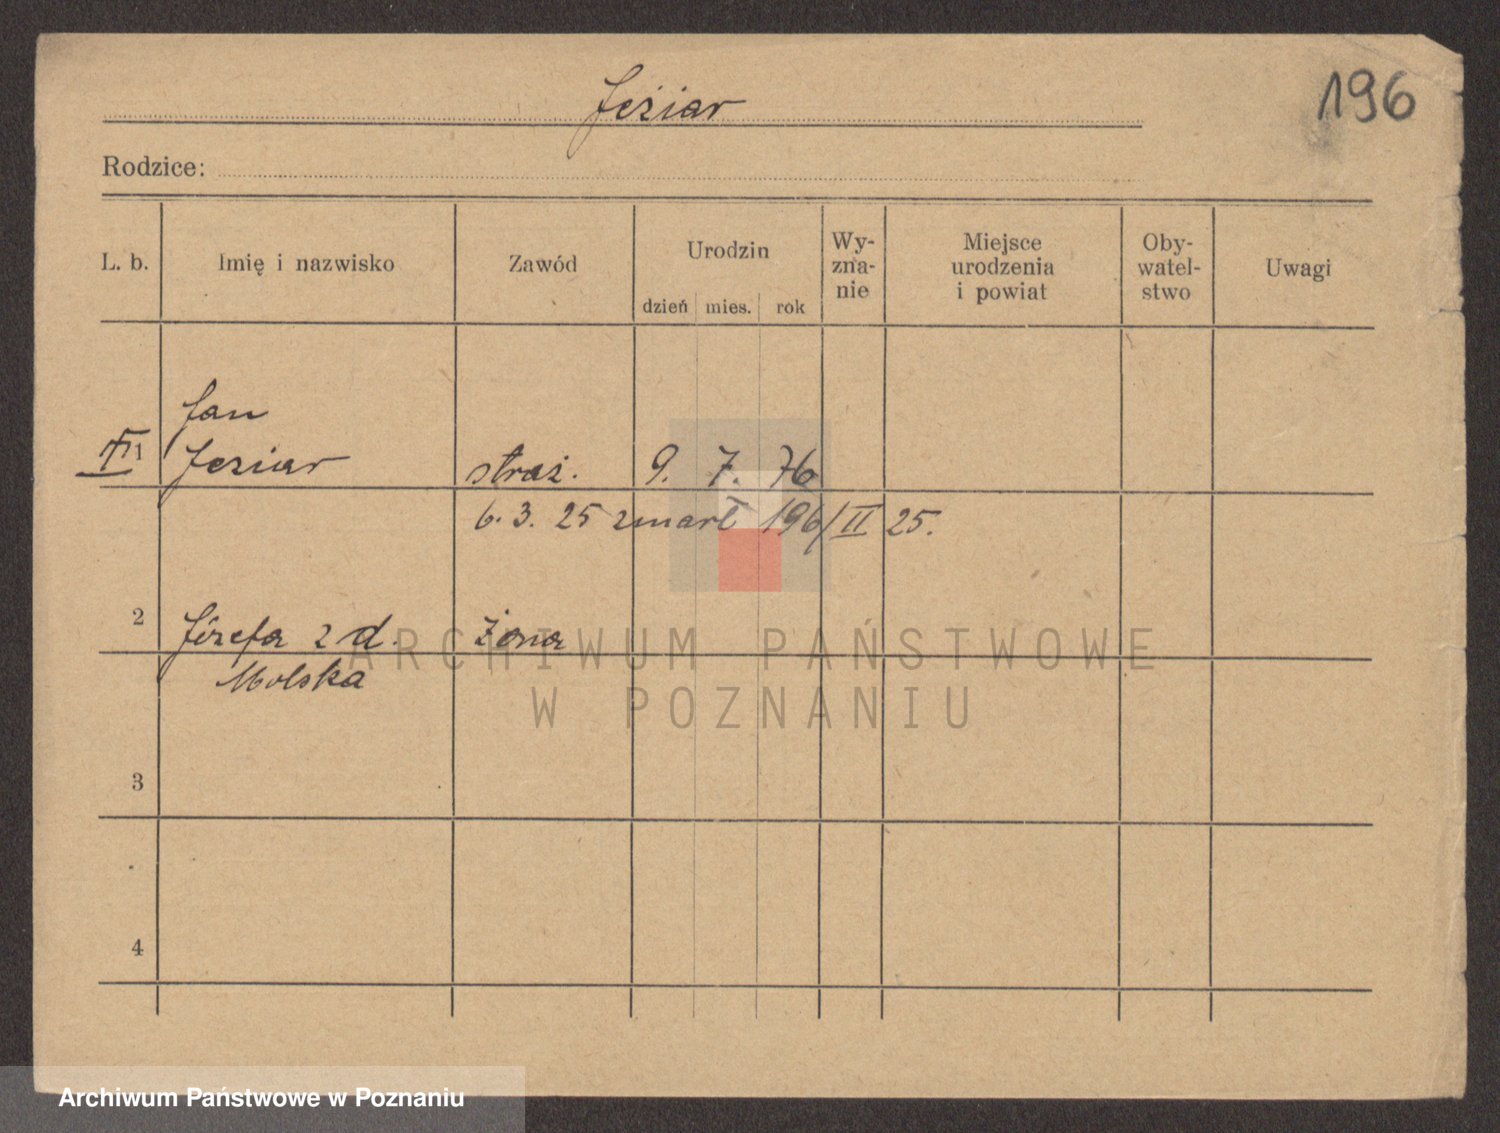 Jeziar
196
Rodzice:
L. b.
Imię i nazwisko
Zawód
Urodzin
dzień mies. rok
Wy-
zna-
nie
Miejsce
urodzenia
i powiat
Oby-
watel-
stwo
Uwagi
Jan
1 Jeziar straż. 9. 7. 76
6. 3. 25 zmarł 196/II 25.
2 Józefa z d. żona
Molska
3
4
ARCHIWUM PAŃSTWOWE
W POZNANIU
Archiwum Państwowe w Poznaniu